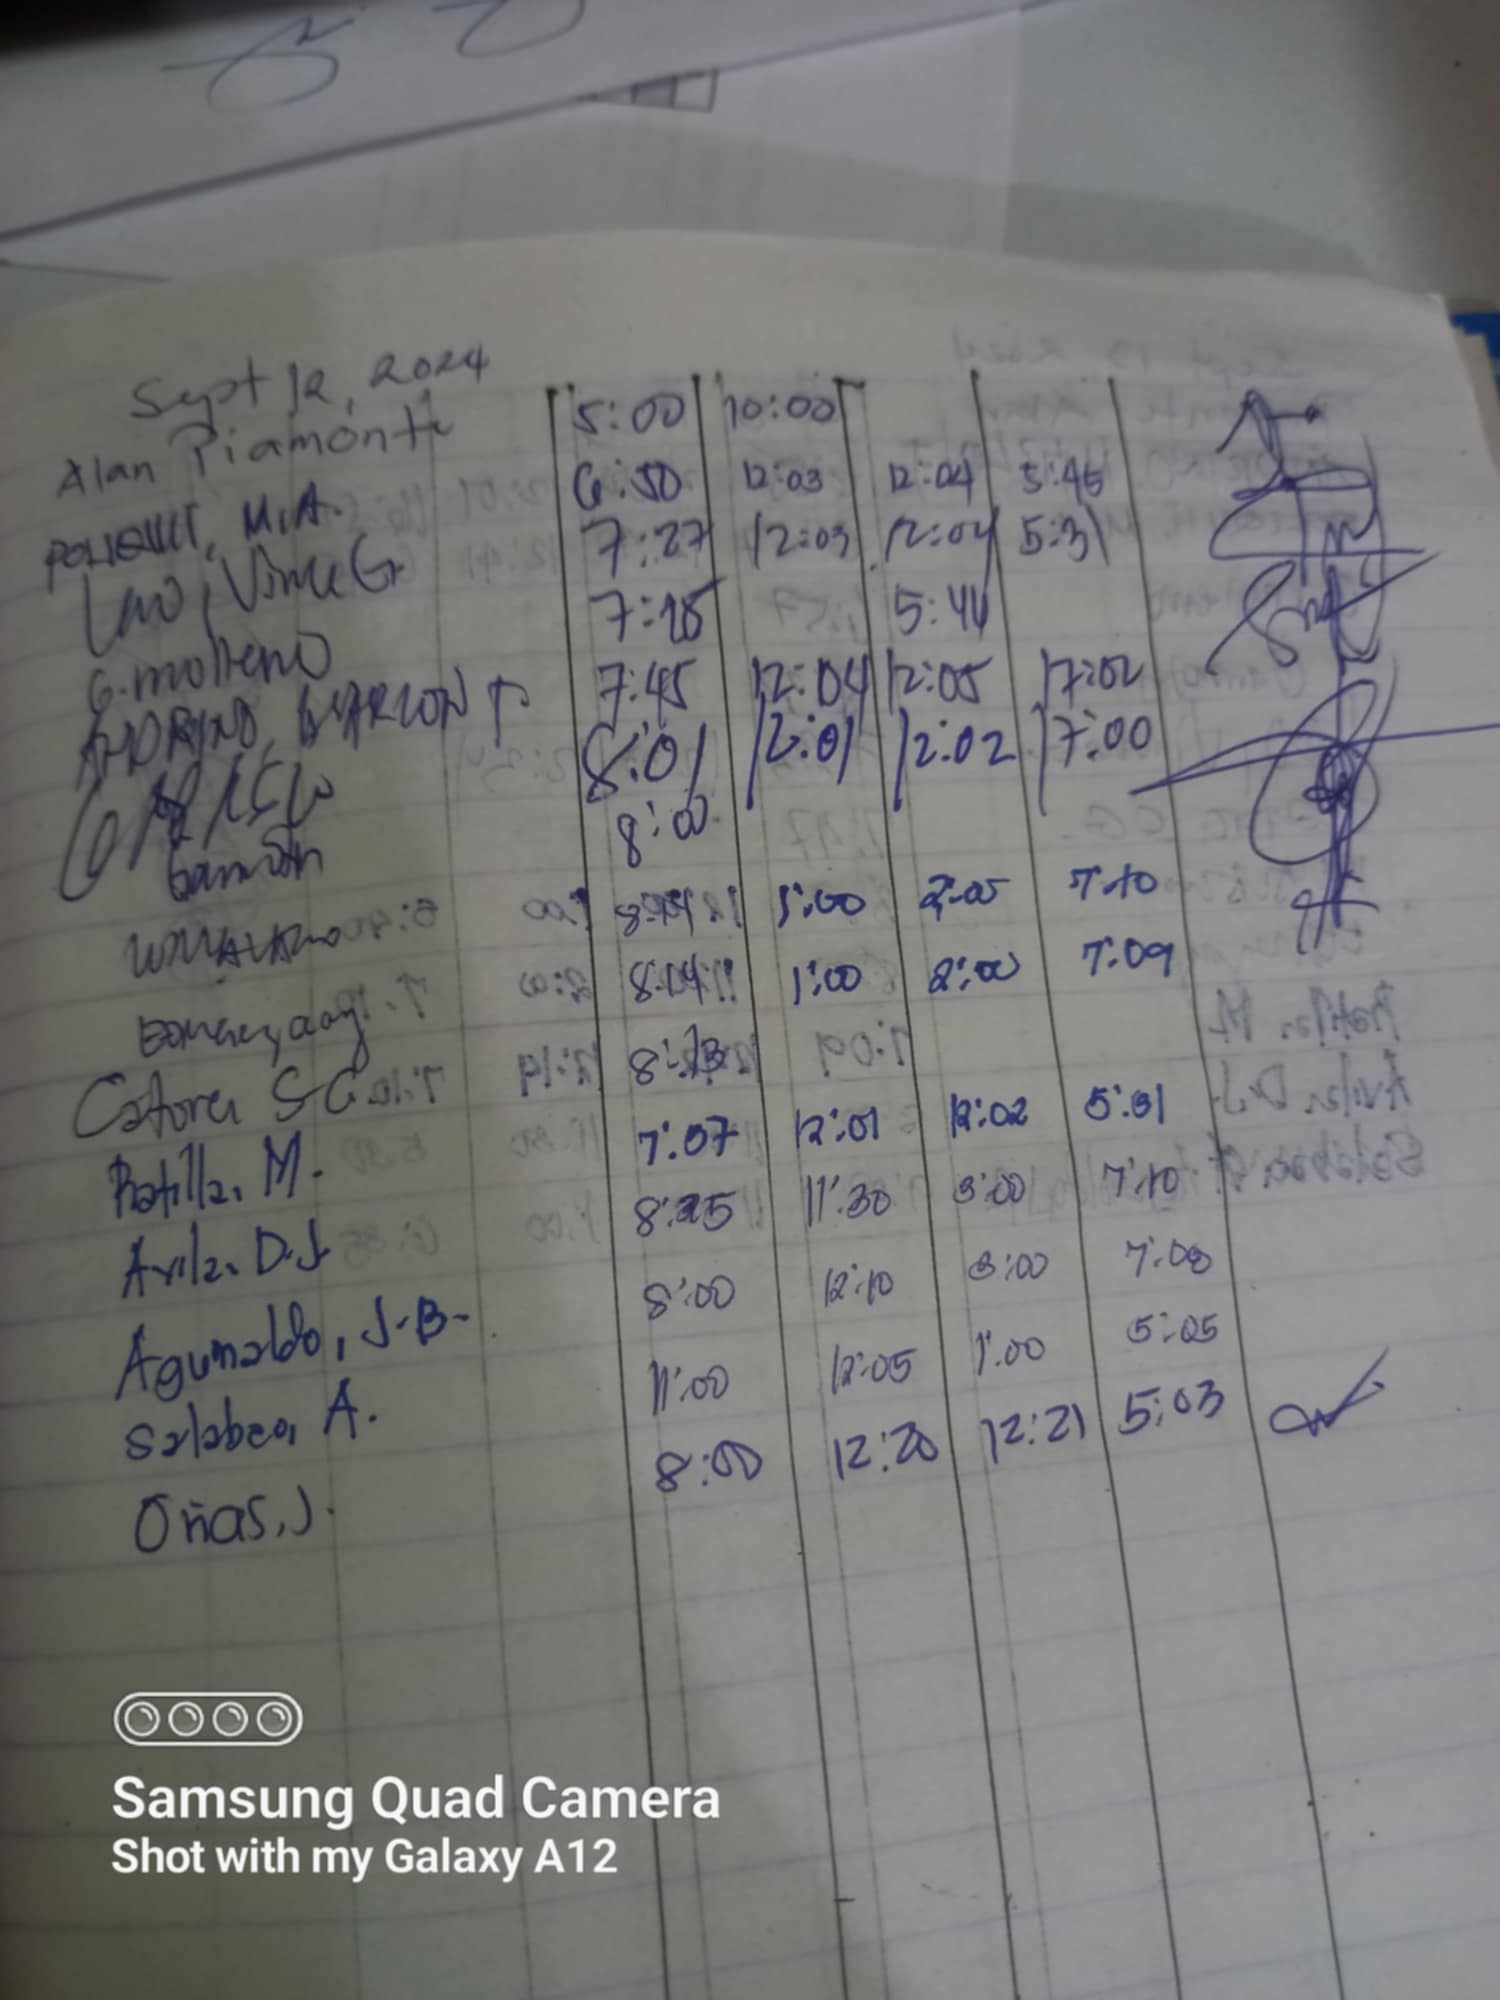 Sept 12, 2024
Alan Piamonte 5:00 10:00
M.A. 6:50 12:03 12:04 5:45
Lao, Vince G. 7:27 12:03 12:04 5:31
G. molleno 7:28 5:44
7:45 12:04 12:05 17:02
8:01 12:01 12:02 17:00
8:00
1:00 2:05 7:10
8:04 1:00 2:00 7:09
Catora S-G 8:13
Ratilla, M. 7:07 12:01 12:02 5:31
Avila, D.J 8:25 11:30 3:00 7:10
Aguinaldo, J.B. 8:00 12:10 3:00 7:08
Salabao, A. 11:00 12:05 1:00 5:05
Oñas, J. 8:00 12:20 12:21 5:03
Samsung Quad Camera
Shot with my Galaxy A12